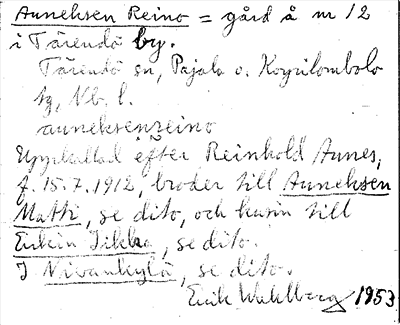 Auneksen Reino = gård å nr 12
i Tärendö by.
Tärendö sn, Pajala o. Korpilombolo
tg, Nb. l.
auneksenreino
Uppkallad efter Reinhold Aunes,
f. 15.7.1912, broder till Auneksen
Matti, se dito, och kusin till
Eukin Iikka, se dito.
I Nivankylä, se dito.
Erik Wahlberg 1953